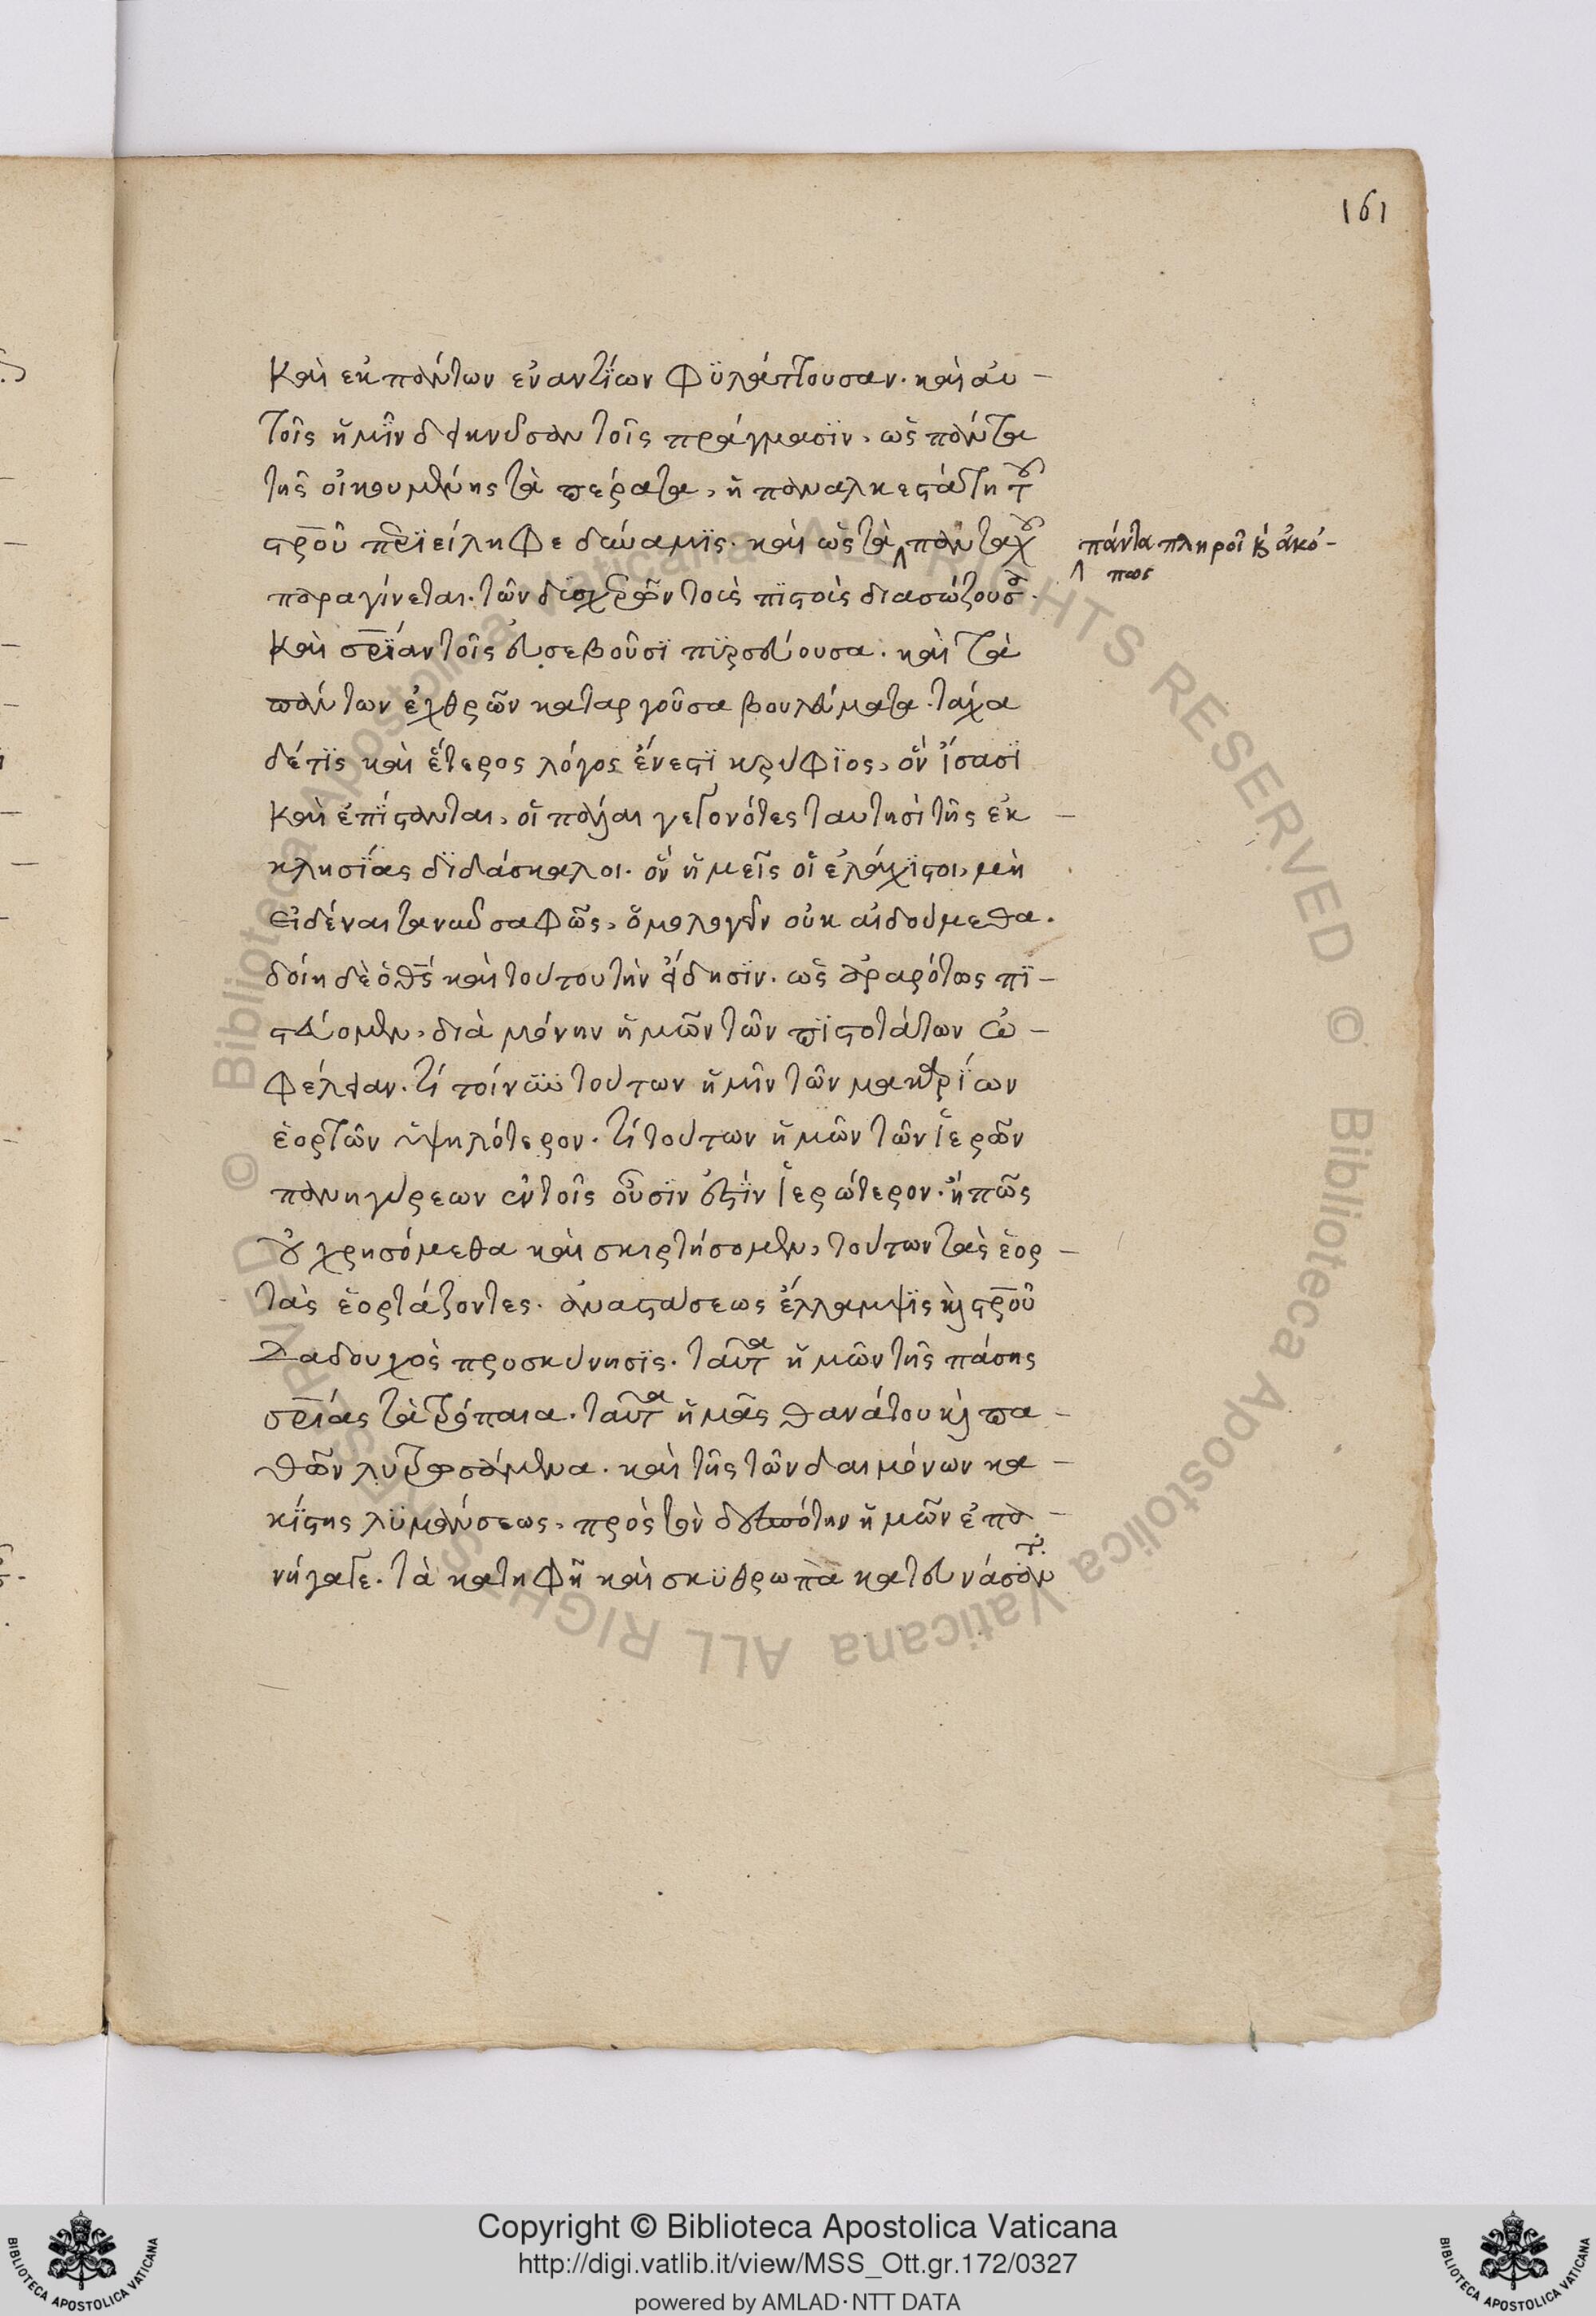 161
Καὶ ἐκ πάντων ἐναντίων φϋλάττουσαν. καὶ αὐ-
τοῖς ἡμῖν δεικνῦσαν τοῖς πράγμασϊν, ὡς πάντα
τῆς οἰκουμένης τὰ πέρατα, ἡ παναλκεστάτη τοῦ
στροῦ πρϊείληφε δύναμϊς. καὶ ὡς τὰ πανταχοῦ
πάντα πληροῖ καὶ ἀκό-
πως
παραγίνεται. τῶν δϊσχερῶν τοὺς πϊστοὺς διασώζουσα.
Καὶ σρίαν τοῖς εὐσεβοῦσϊ πϊρστεύουσα. καὶ τὰ
πάντων ἐχθρῶν καταργοῦσα βουλεύματα. τάχα
δέ τϊς καὶ ἕτερος λόγος ἔνεστϊ κρυφϊος, ὃν ἴσασϊ
Καὶ ἐπΐστανται, οἱ πάλαι γεγονότες ταυτησὶ τῆς ἐκ-
κλησϊας δϊδάσκαλοι. ὃν ἡμεῖς οἱ ἐλάχϊστοι, μὴ
εἰδέναι τανῦν σαφῶς, ὁμολογεῖν οὐκ αἰδούμεθα.
δοίη δὲ ὁ θς καὶ τούτου τὴν εἴδησϊν. ὡς ἀραρότως πϊ-
στεύομεν, διὰ μόνην ἡμῶν τῶν πϊστοτάτων ὠ-
φέλειαν. τί τοίνυν τούτων ἡμῖν τῶν μακαρϊων
ἑορτῶν ὑψηλότερον. τί τούτων ἡμῶν τῶν ἱερῶν
πανηγύρεων ἐν τοῖς οὖσϊν ἐστϊν ἱερώτερον. ἢ πῶς
οὐ χρησόμεθα καὶ σκιρτήσομεν, τούτων τὰς ἑορ-
τὰς ἑορτάζοντες. ἀναστάσεως ἔλλαμψϊς καὶ στροῦ
δαδουχὸς προσκύνησϊς. ταῦτα ἡμῶν τῆς πάσης
σριάς τὰ τρόπαια. ταῦτα ἡμᾶς θανάτου καὶ πα-
θῶν λυτρωσάμενα. καὶ τῆς τῶν δαιμόνων κα-
κΐστης λϋμάνσεως, πρὸς τὸν δεσπότην ἡμῶν ἐπα-
νήγαγε. τὰ κατηφῆ καὶ σκϋθρωπὰ κατευνάσαντ
Copyright © Biblioteca Apostolica Vaticana
http://digi.vatlib.it/view/MSS_Ott.gr.172/0327
powered by AMLAD·NTT DATA